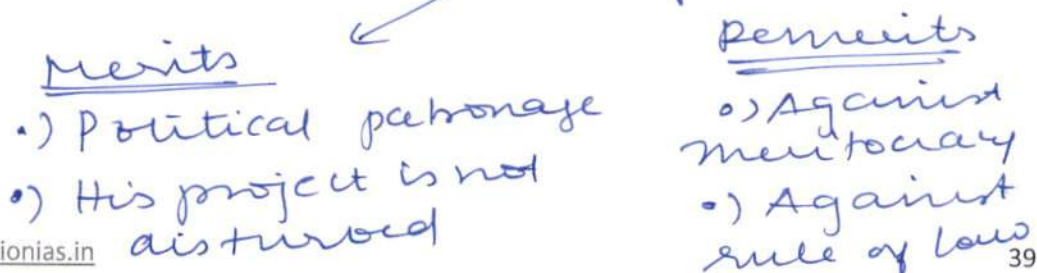 Merits
•) Political patronage
•) His project is not
disturbed
Demerits
•) Against
meritocracy
•) Against
rule of law
ionias.in
39